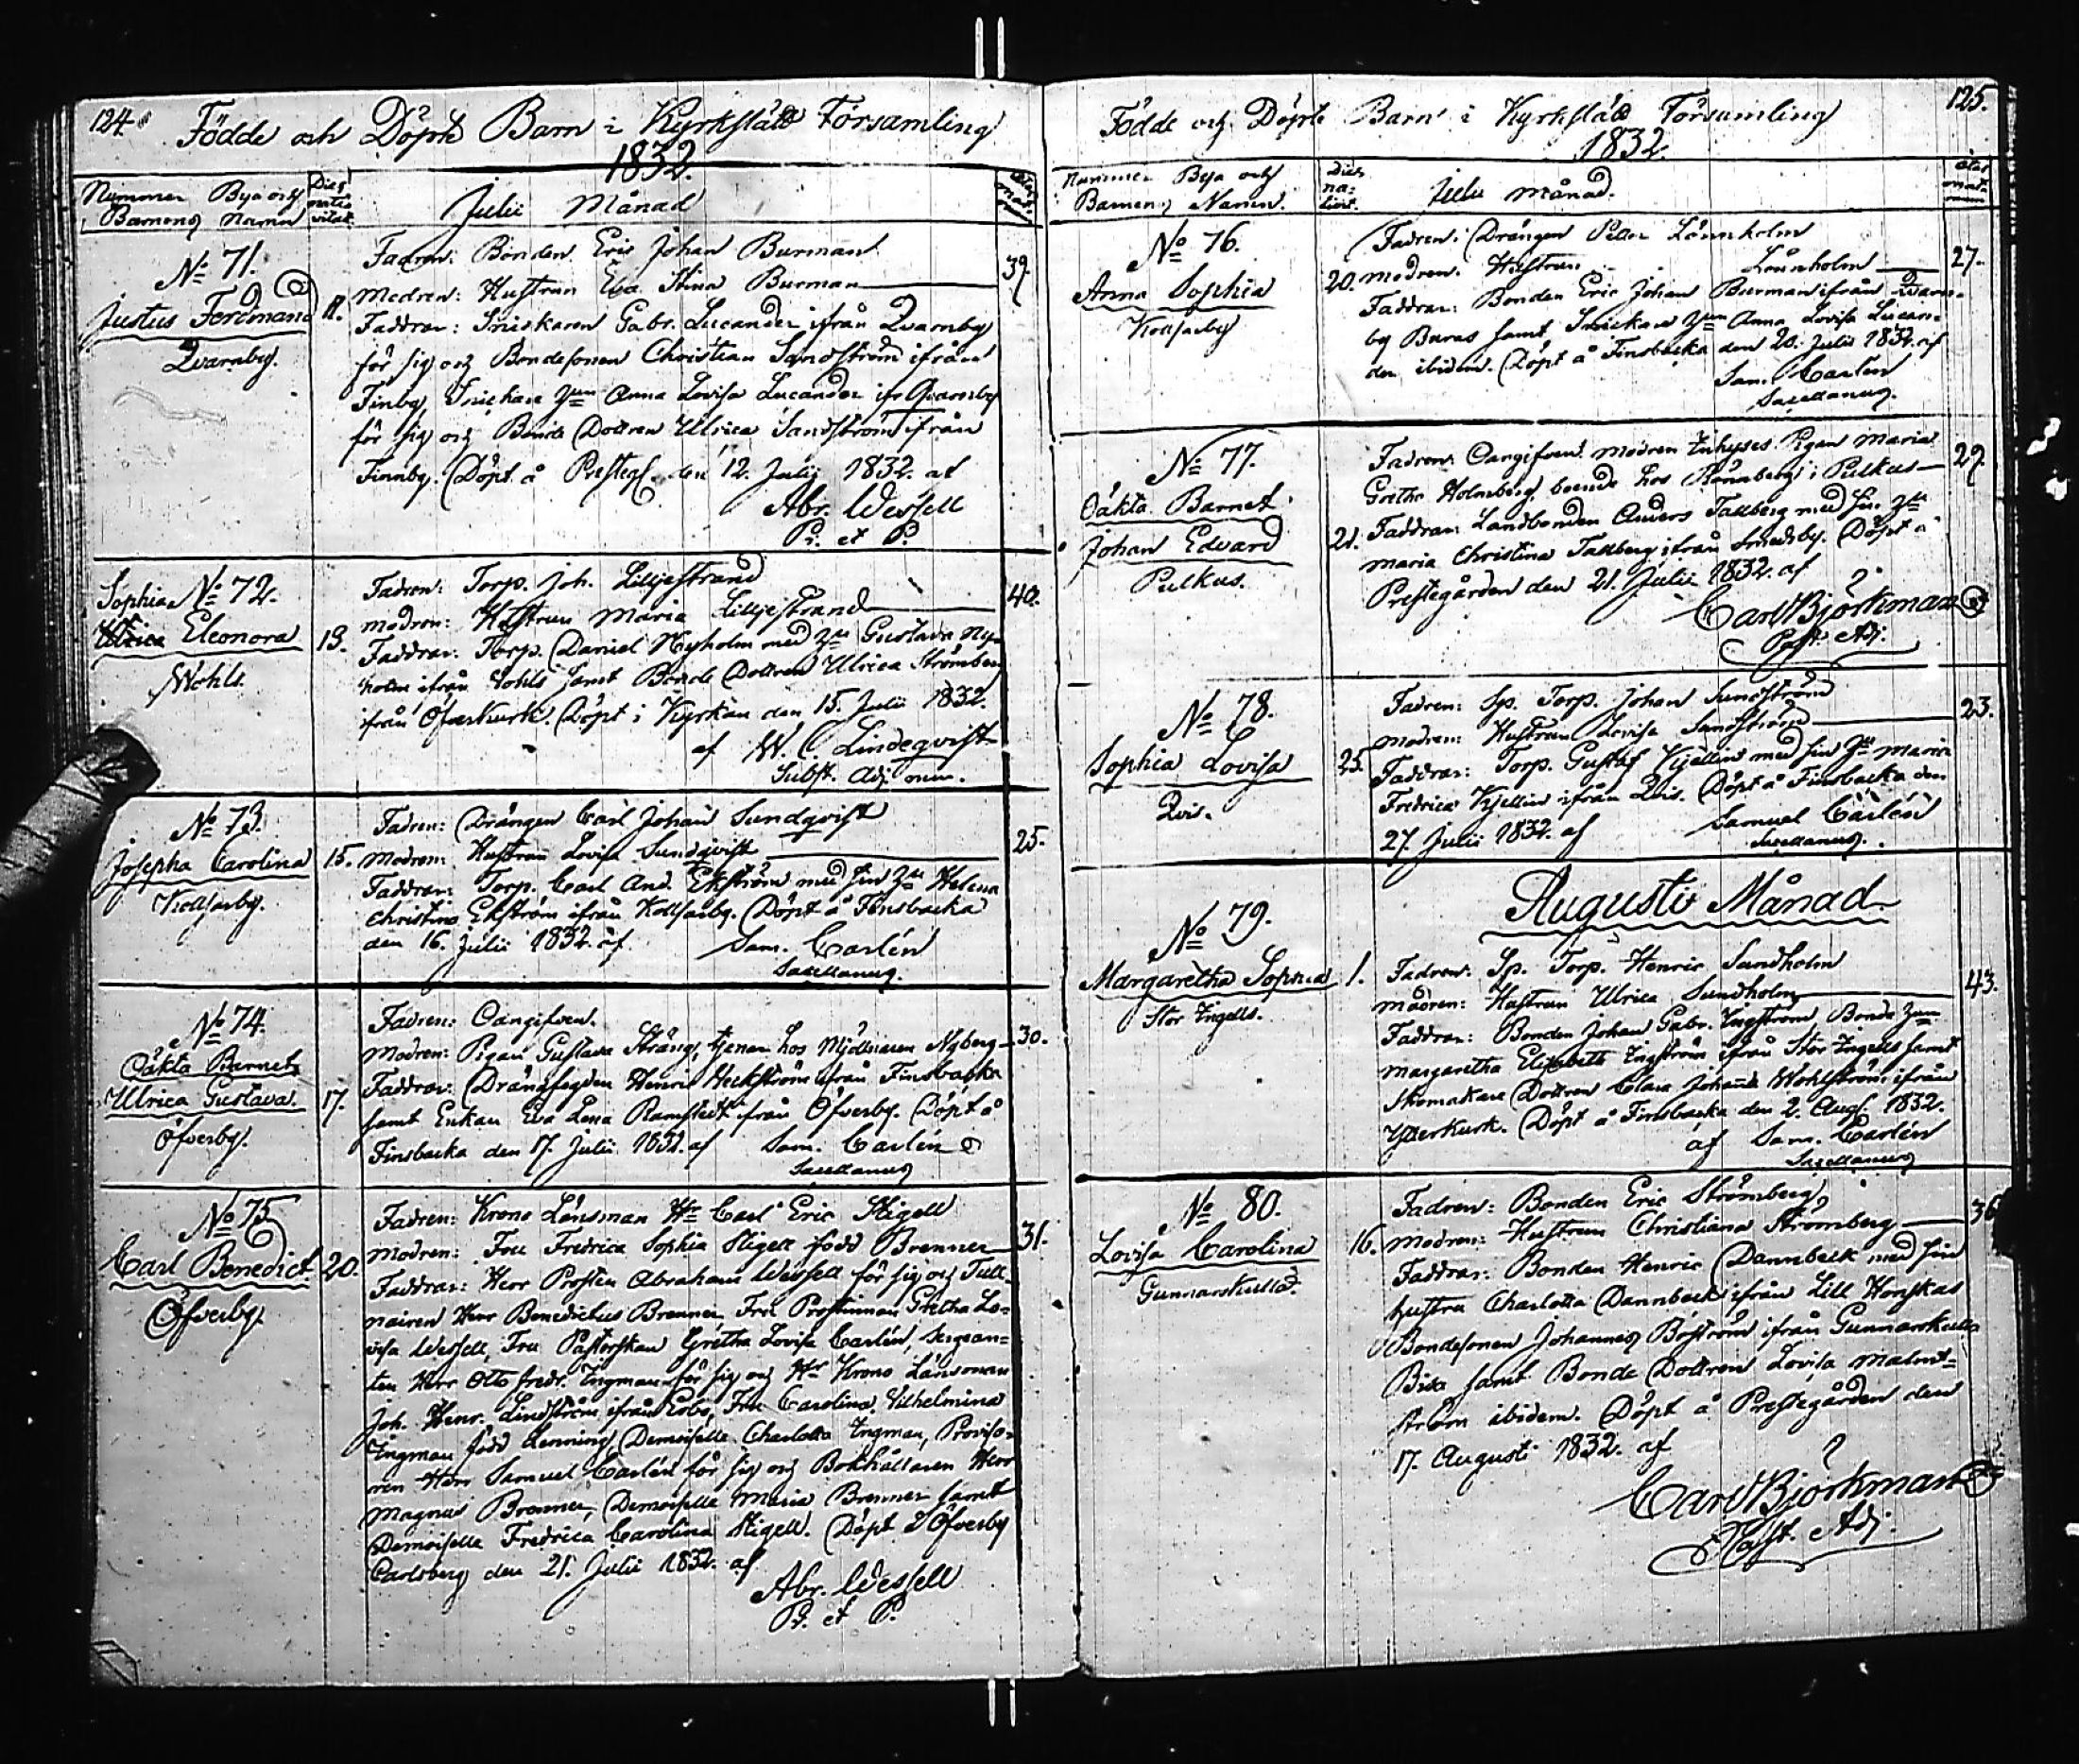 124.
Födde och Döpte Barn i Kyrkslätt Församling
1832.
Nummer Bya och
Barnens Namn
Dies
nativ
vitat.
Julii Månad
No 71.
Justus Ferdinand
Qvarnby.
11.
Fadren: Bonden Eric Johan Burman
Modren: Hustrun Eva Stina Burman
39.
Faddrar: Snickaren Gabr. Lucander ifrån Qvarnby
för sig och Bondesonen Christian Sandström ifrån
Finby, Snickare Anna Lovisa Lucander ifr Qvarnby
för sig och Bonde Dottren Ulrica Sandström ifrån
Finnby. Döpt å Presteg. den 12. Julii 1832. af
Abr. Wessell
Pr. et P.
Sophia No 72.
Ulrica Eleonora
Wohls
13.
Fadren: Torp. Joh. Liljestrand
Modren: Hustrun Maria Liljestrand
40.
Faddrar: Torp. Daniel Nyholm med Gustava Ny-
holm ifrån Wohls samt Bonde Dottren Ulrica Strömber
ifrån Öfverkurk. Döpt i Kyrkan den 15. Julii 1832.
af W. Lindeqvist
Subst. Adj. min.
No 73.
Josepha Carolina
Kollsarby.
15.
Fadren: Drängen Carl Johan Sundqvist
Modren: Hustrun Lovisa Sundqvist
25.
Faddrar: Torp. Carl And. Ekström med sin Helena
Christina Ekström ifrån Kollsarby. Döpt å Finsbacka
den 16. Julii 1832. af
Sam. Carlén
Sacellanus.
No 74.
Oäkta Barnet
Ulrica Gustava.
Öfverby.
17.
Fadren: Oangifven.
Modren: Pigan Gustava Sträng, tjenar hos Mjölnaren Nyberg
30.
Faddrar: Drängfogden Henric Heckström ifrån Finsbacka
samt Enkan Eva Lena Ramstedt ifrån Öfverby. Döpt å
Finsbacka den 17. Julii 1832. af Sam. Carlén
Sacellanus
No 75
Carl Benedict
Öfverby.
20.
Fadren: Krono Länsman Hr Carl Eric Stigell
Modren: Fru Fredrica Sophia Stigell född Brenner
31.
Faddrar: Herr Prosten Abraham Wessell för sig och Jull-
nairen Herr Benedictus Brenner, Fru Prostinnan Gretha Lo-
visa Wessell, Fru Pastorskan Gretha Lovisa Carlén, Sergean-
ten Herr Otto Fredr. Ingman för sig och Hr Krono Länsman
Joh. Henr. Lindström ifrån Esbo, Fru Carolina Vilhelmina
Ingman född Henning, Demoiselle Charlotta Ingman, Proviso-
ren Herr Samuel Carlén för sig och Bokhållaren Herr
Magnus Brenner, Demoiselle Maria Brenner samt
Demoiselle Fredrica Carolina Stigell. Döpt i Öfverby
Carlsberg den 21. Julii 1832. af
Abr. Wessell
Pr. et P.
125.
Födde och Döpte Barn i Kyrkslätt Församling
1832.
Nummer Bya och
Barnens Namn.
Dies
na-
Julii Månad.
No 76.
Anna Sophia
Kollsarby
20.
Fadren: Drängen Petter Lönnholm
Modren: Hustrun Lönnholm
27.
Faddrar: Bonden Eric Johan Burman ifrån Qvarn-
by Buras samt Snickare Anna Lovisa Lucan-
der ibidem. Döpt å Finsbacka den 20. Julii 1832. af
Sam. Carlén
Sacellanus.
No 77.
Oäkta Barnet
Johan Edvard
Pulkus.
21.
Fadren: Oangifven. Modren Inhyses Pigan Maria
Gretha Holmberg, boende hos Rönnberg i Pulkus
29.
Faddrar: Landbonden Anders Tallberg med sin
Maria Christina Tallberg ifrån Smedsby. Döpt å
Prestegården den 21. Julii 1832. af
Carl Björkman
Past. Adj.
No 78.
Sophia Lovisa
Qvis.
25.
Fadren: Sp. Torp. Johan Sundström
Modren: Hustrun Lovisa Sundström
23.
Faddrar: Torp. Gustaf Kjellin med sin Maria
Fredrica Kjellin ifrån Qvis. Döpt å Finsbacka den
27. Julii 1832. af Samuel Carlén
Sacellanus.
Augusti Månad
No 79.
Margaretha Sophia
Stor Ingells.
1.
Fadren: Sp. Torp. Henric Sundholm
Modren: Hustrun Ulrica Sundholm
43.
Faddrar: Bonden Johan Gabr. Ingström Bonde
Margaretha Elisabeth Ingström ifrån Stor Ingells samt
Skomakare Dottren Clara Johanna Wohlström ifrån
Ytterkurk. Döpt å Finsbacka den 2. Aug. 1832.
af Sam. Carlén
Sacellanus
No 80.
Lovisa Carolina
Gunnarskulla.
16.
Fadren: Bonden Eric Strömberg
Modren: Hustrun Christiana Strömberg
36
Faddrar: Bonden Henric Dannbeck med sin
hustru Charlotta Dannbeck ifrån Lill Honskas
Bondesonen Johannes Boström ifrån Gunnarskulla
Bisa samt Bonde Dottren Lovisa Malmt-
ström ibidem. Döpt å Prestegården den
17. Augusti 1832. af
Carl Björkman
Past. Adj.